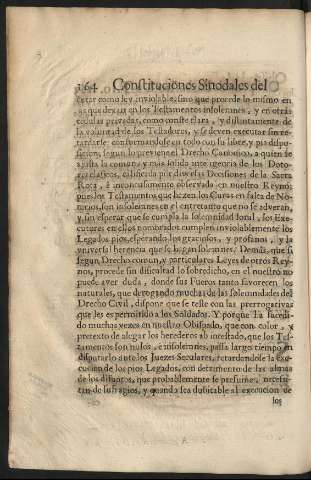 164 Constituciones Sinodales del
tatar como ley inviolable, sino que procede lo mismo en
las que dexar en los Testamentos insolemnes, y en otras
cedulas privadas, como conste clara, y distintamente de
la voluntad de los Testadores, y se deven executar sin re-
tardarse conformandose en todo con su libre, y pia dispo-
sicion, segun lo previene el Drecho Canonico, a quien se
ajusta la comun, y mas solida inteligencia de los Doto-
res clasicos, calificada por diversas Decisiones de la Sacra
Rota, è inconcusamente observada en nuestro Reyno;
pues los Testamentos que hazen los Curas en falta de No-
tarios, son insolemnes en el entretanto que no se adveran,
y sin esperar que se cumpla la solemnidad foral, los Exe-
cutores en ellos nombrados cumplen inviolablemente los
Legados pios, esperando los graciosos, y profanos, y la
universal herencia que se hagan solemnes. Demás, que si
segun Drecho comun, y particulares Leyes de otros Rey-
nos, procede sin dificultad lo sobredicho, en el nuestro no
puede aver duda, donde sus Fueros tanto favorecen los
naturales, que derogando muchas de las solemnidades del
Drecho Civil, dispone que se teste con las prerrogativas
que les es permitido à los Soldados. Y porque ha sucedi-
do muchas vezes en nuestro Obispado, que con color, y
pretexto de alegar los herederos ab intestado, que los Tes-
tamentos son nulos, è insolemnes, passa largo tiempo en
disputarlo ante los Juezes Seculares, retardandose la exe-
cucion de los pios Legados, con detrimento de las almas
de los difuntos, que probablemente se presume, necesi-
tan de sufragios, y quando sea dubitable al execucion de
los